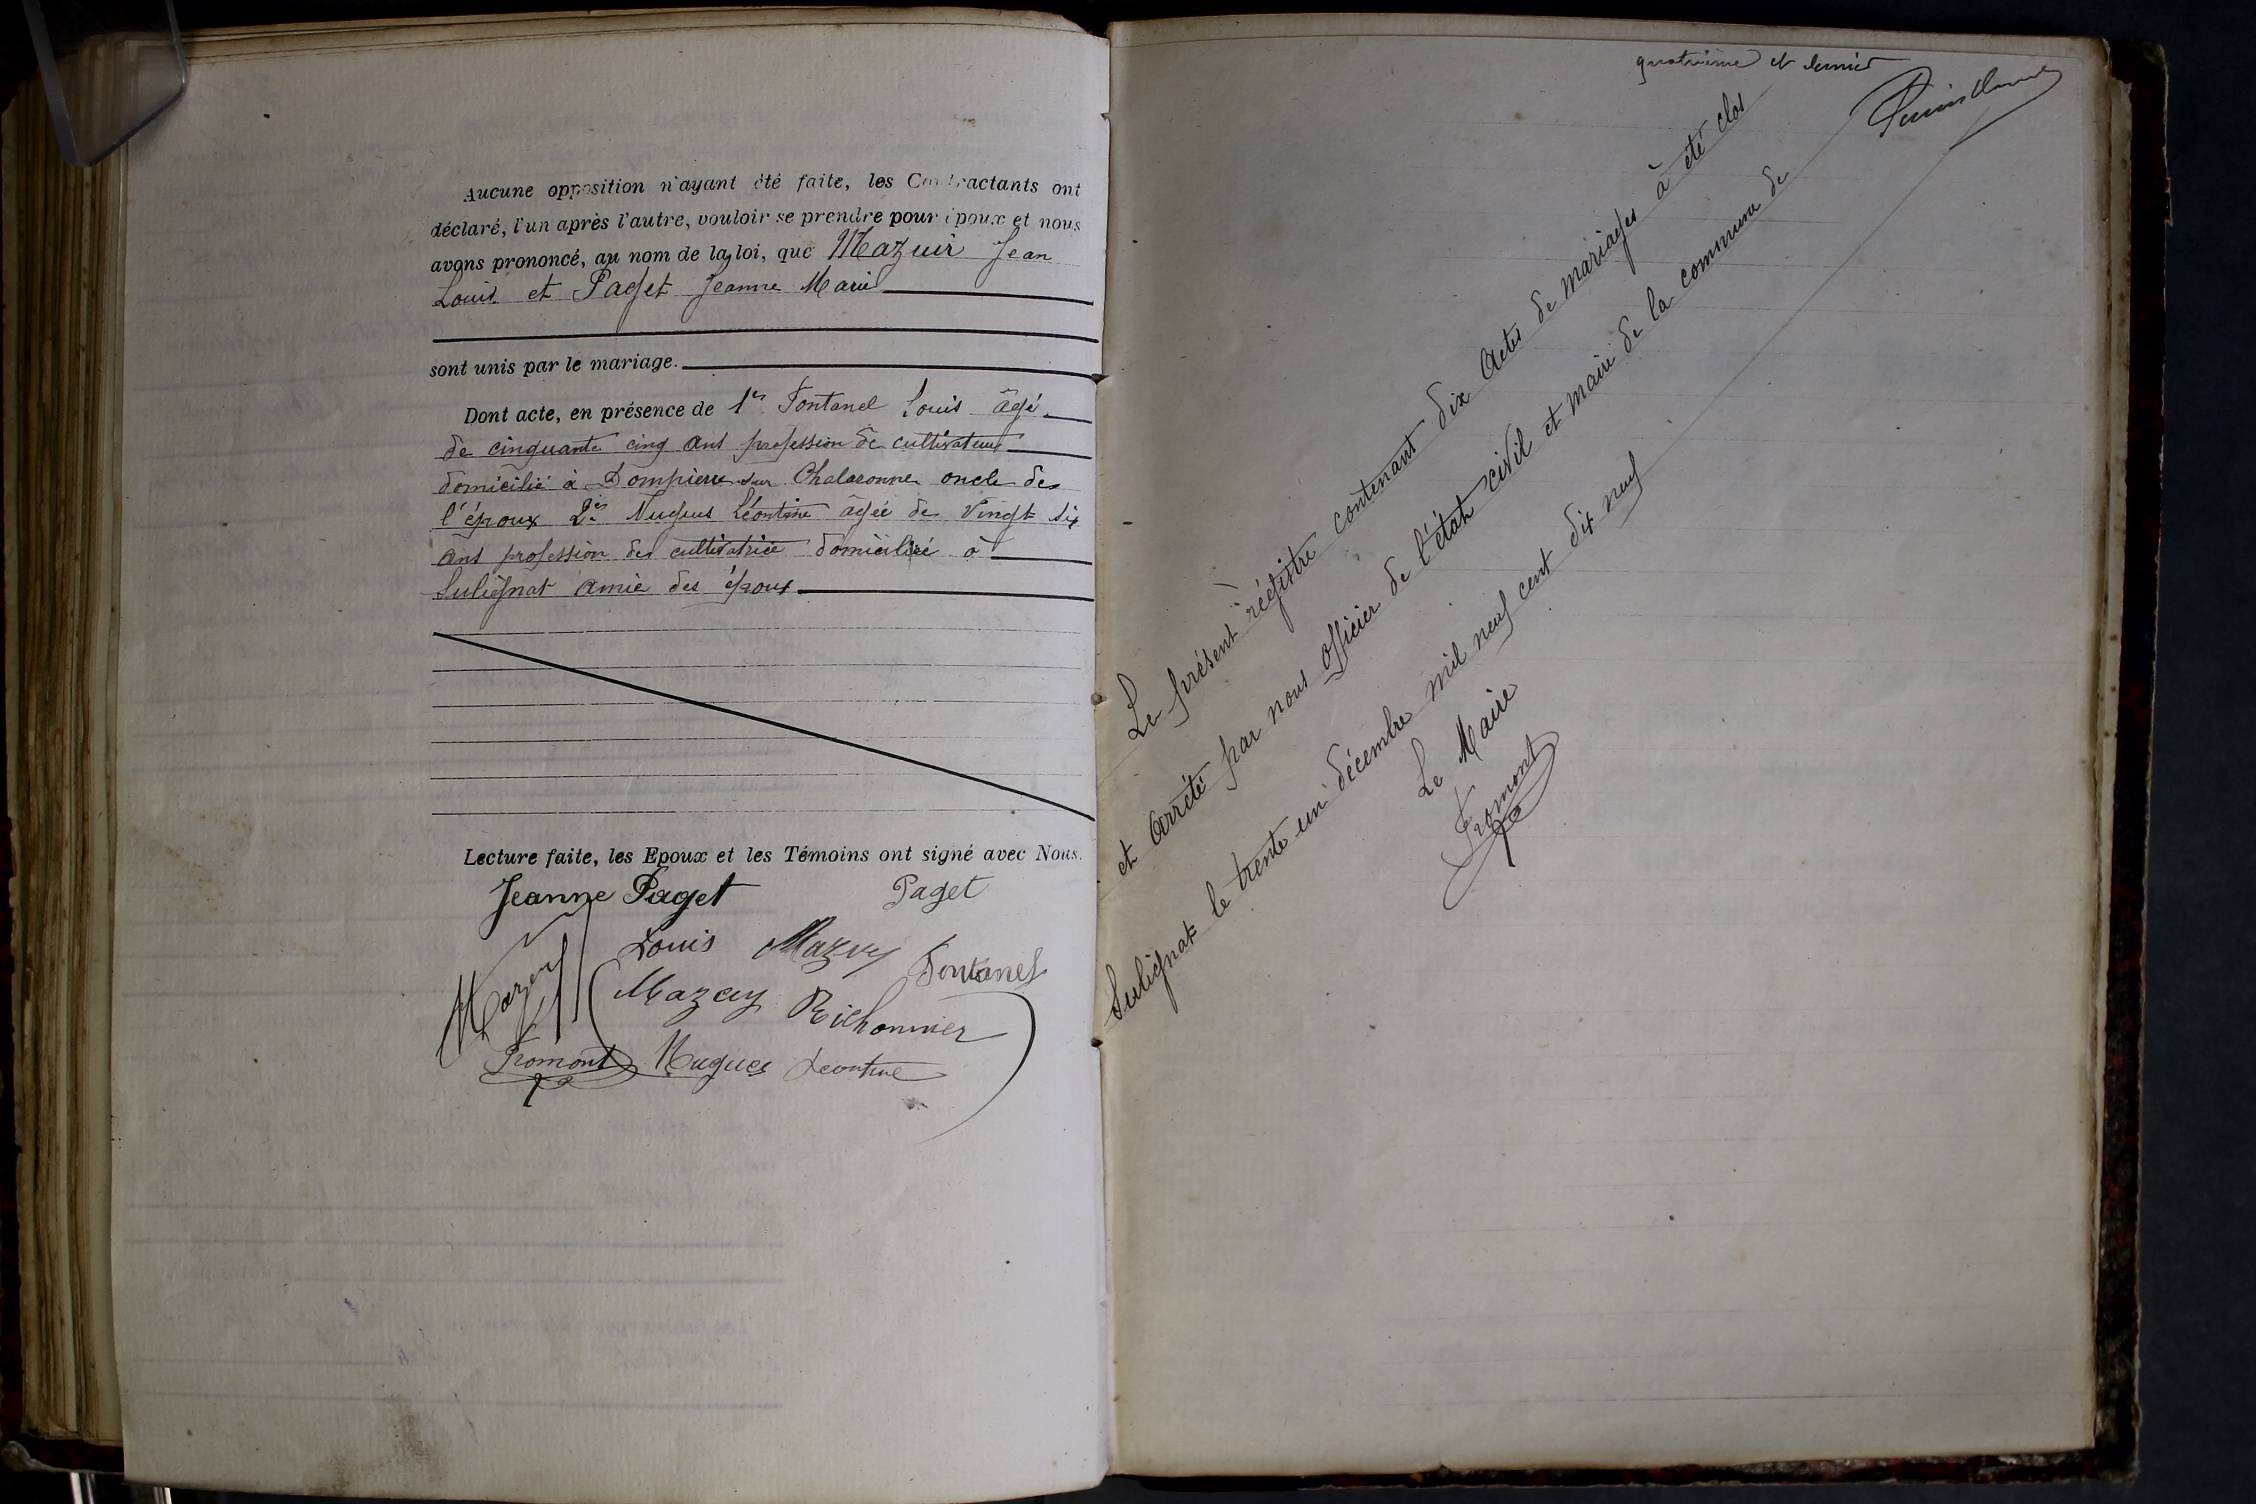 Aucune opposition n'ayant été faite, les Contractants ont
déclaré, l'un après l'autre, vouloir se prendre pour époux et nous
avons prononcé, au nom de la loi, que Mazuir Jean
Louis et Paget Jeanne Marie
sont unis par le mariage.
Dont acte, en présence de 1er Fontanel Louis âgé
de cinquante cinq ans profession de cultivateur
domicilié à Dompierre sur Chalaronne oncle de
l'époux 2e Nugues Léontine âgée de vingt six
ans profession de cultivatrice domiciliée à
Sulignat amie des époux
Lecture faite, les Epoux et les Témoins ont signé avec Nous.
Jeanne Paget Paget
Louis Mazuy Fontanel
Mazuy Richonnier
Fromont Nugues Leontine
quatrième et dernier
Le présent régistre contenant dix actes de mariages à été clos
et arrêté par nous officier de l'état civil et maire de la commune de
Sulignat le trente un décembre mil neuf cent dix neuf
Le Maire
Fromont